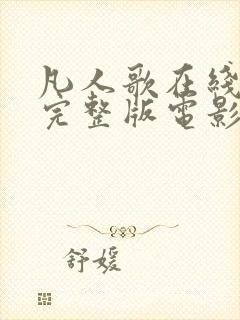 凡人歌在綫
完整版電影
舒媛